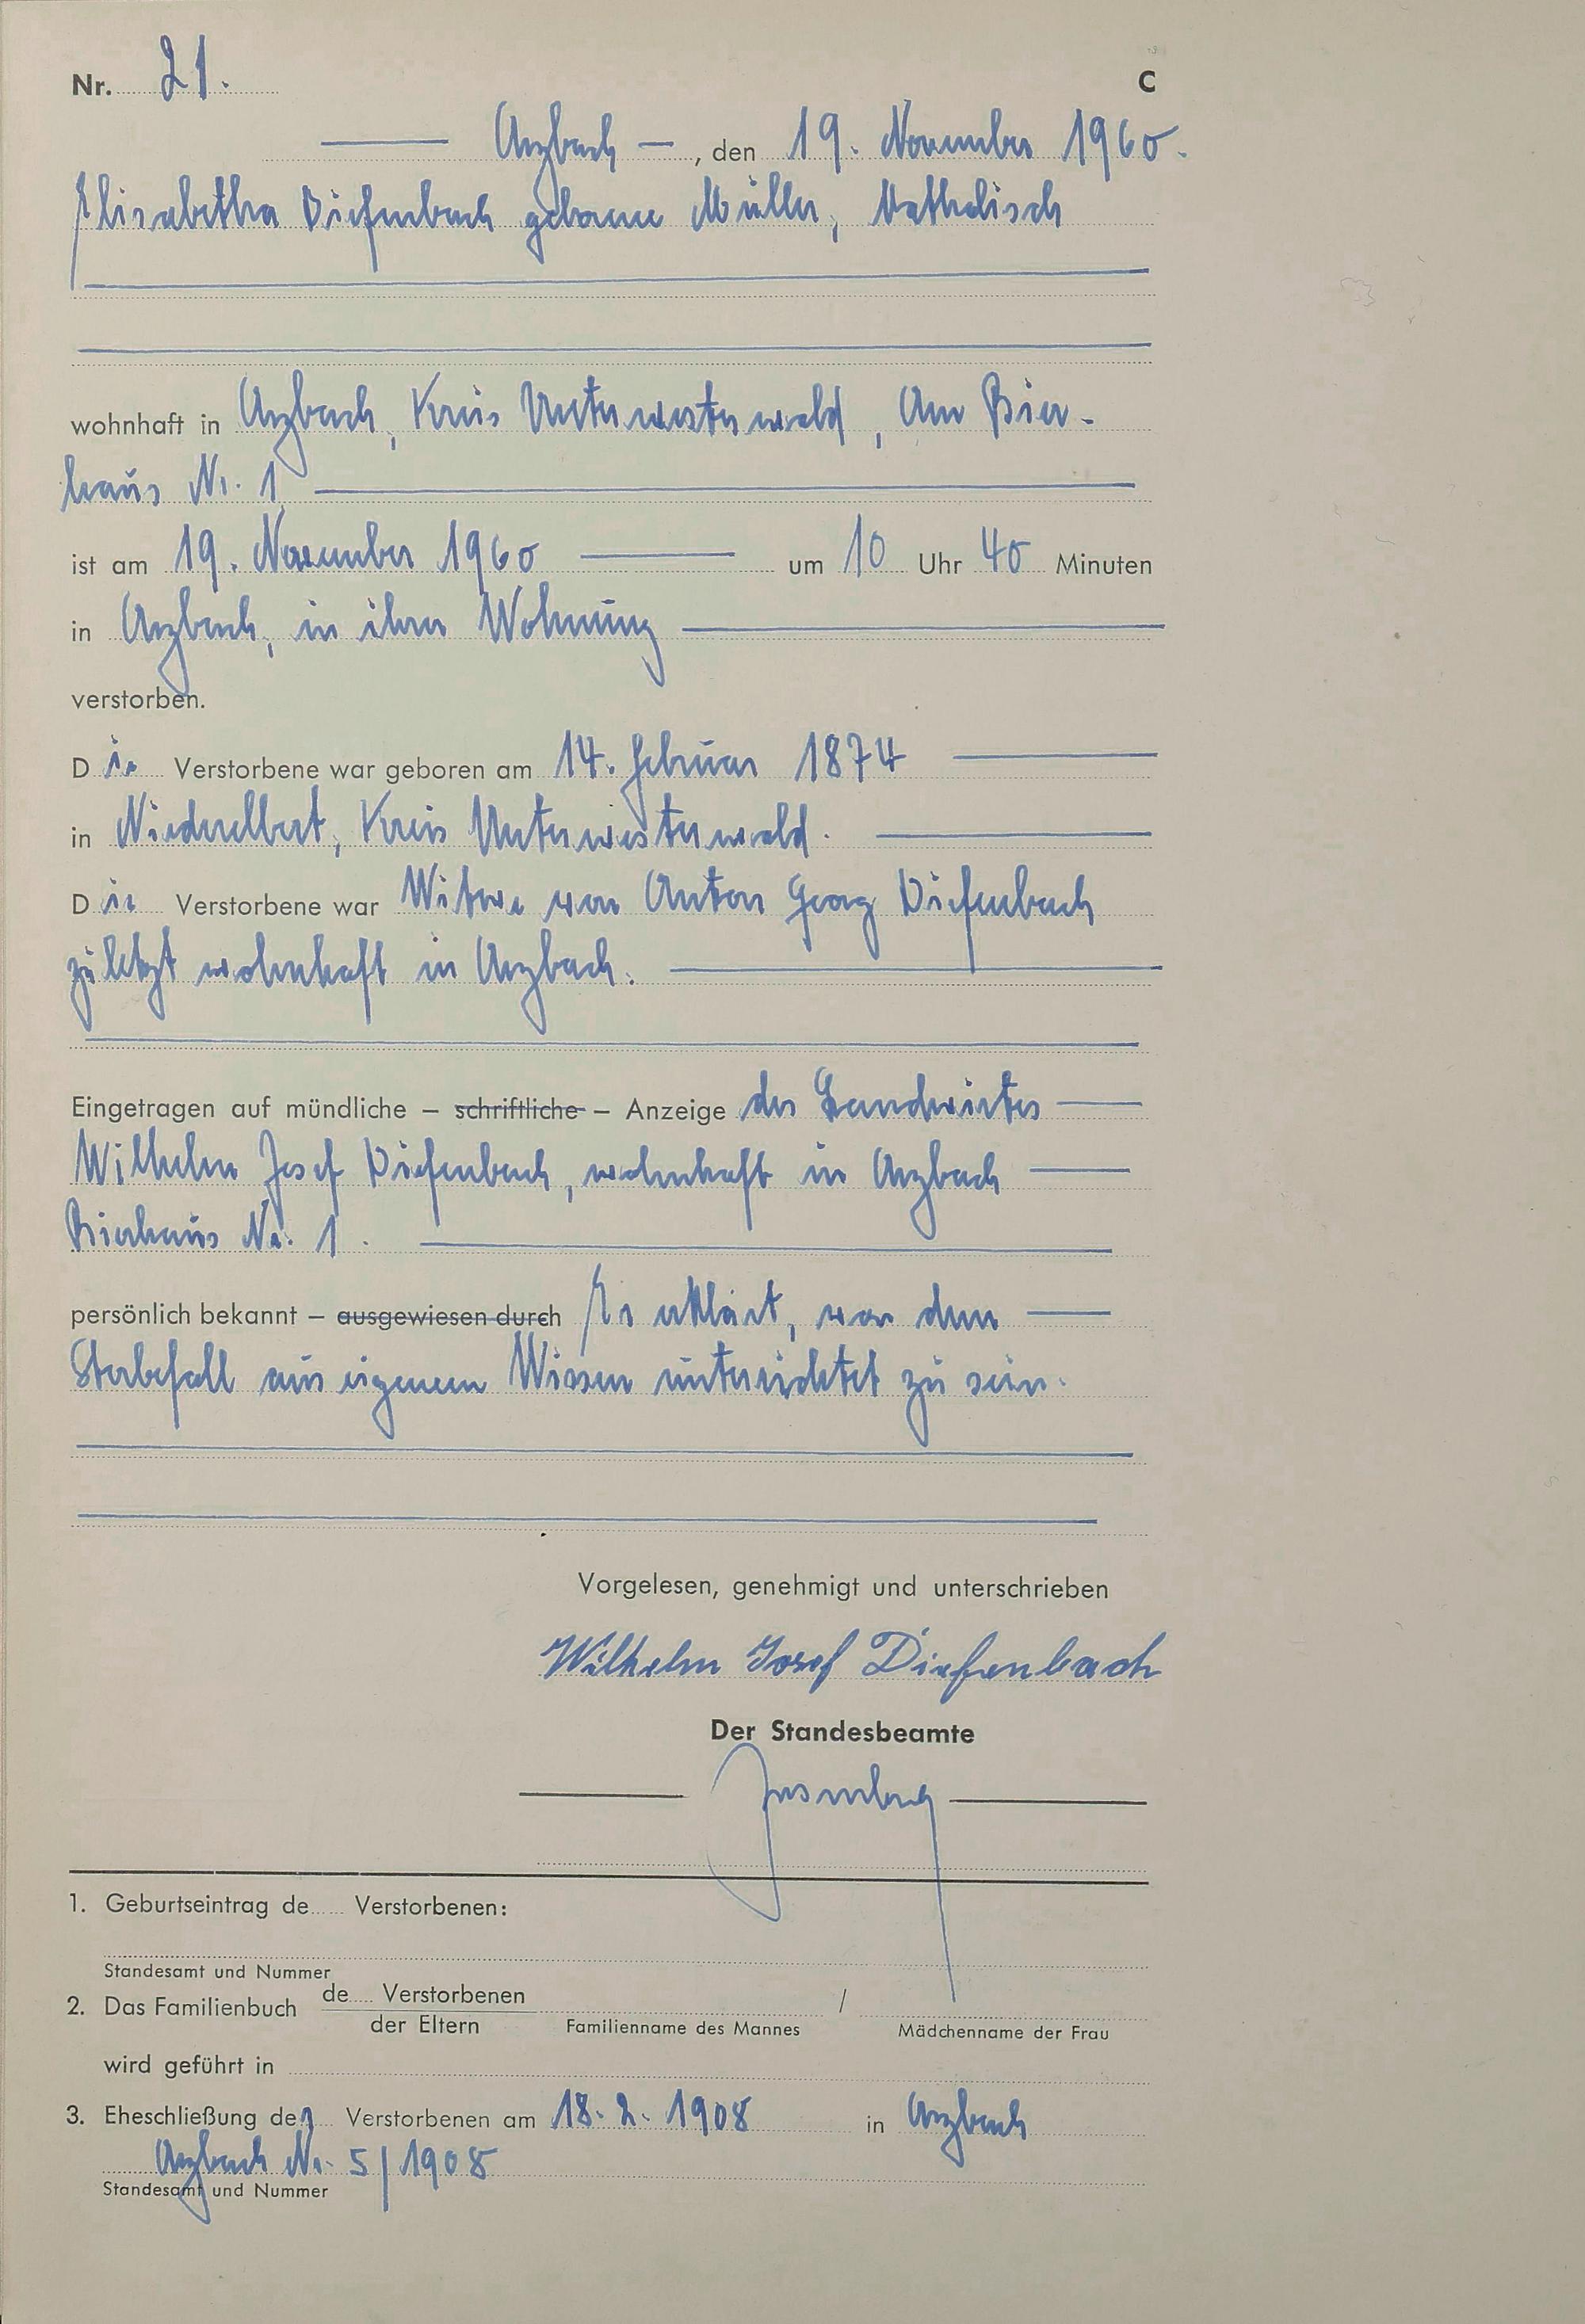 Nr. 21. C
Arzbach, den 19. November 1960.
Elisabetha Diefenbach geborene Müller, katholisch
wohnhaft in Arzbach, Kreis Unterwesterwald, Am Bier-
haus Nr. 1
ist am 19. November 1960 um 10 Uhr 40 Minuten
in Arzbach, in ihrer Wohnung
verstorben.
Die Verstorbene war geboren am 14. Februar 1874
in Niederelbert, Kreis Unterwesterwald.
Die Verstorbene war Witwe von Anton Georg Diefenbach
zuletzt wohnhaft in Arzbach.
Eingetragen auf mündliche – schriftliche – Anzeige des Landwirtes
Wilhelm Josef Diefenbach, wohnhaft in Arzbach
Bierhaus Nr. 1.
persönlich bekannt – ausgewiesen durch Er erklärt, von dem
Sterbefall aus eigenem Wissen unterrichtet zu sein.
Vorgelesen, genehmigt und unterschrieben
Wilhelm Josef Diefenbach
Der Standesbeamte
1. Geburtseintrag de...... Verstorbenen:
Standesamt und Nummer
2. Das Familienbuch de..... Verstorbenen /
der Eltern Familienname des Mannes Mädchenname der Frau
wird geführt in
3. Eheschließung der Verstorbenen am 18. 2. 1908 in Arzbach
Arzbach Nr. 5/1908
Standesamt und Nummer